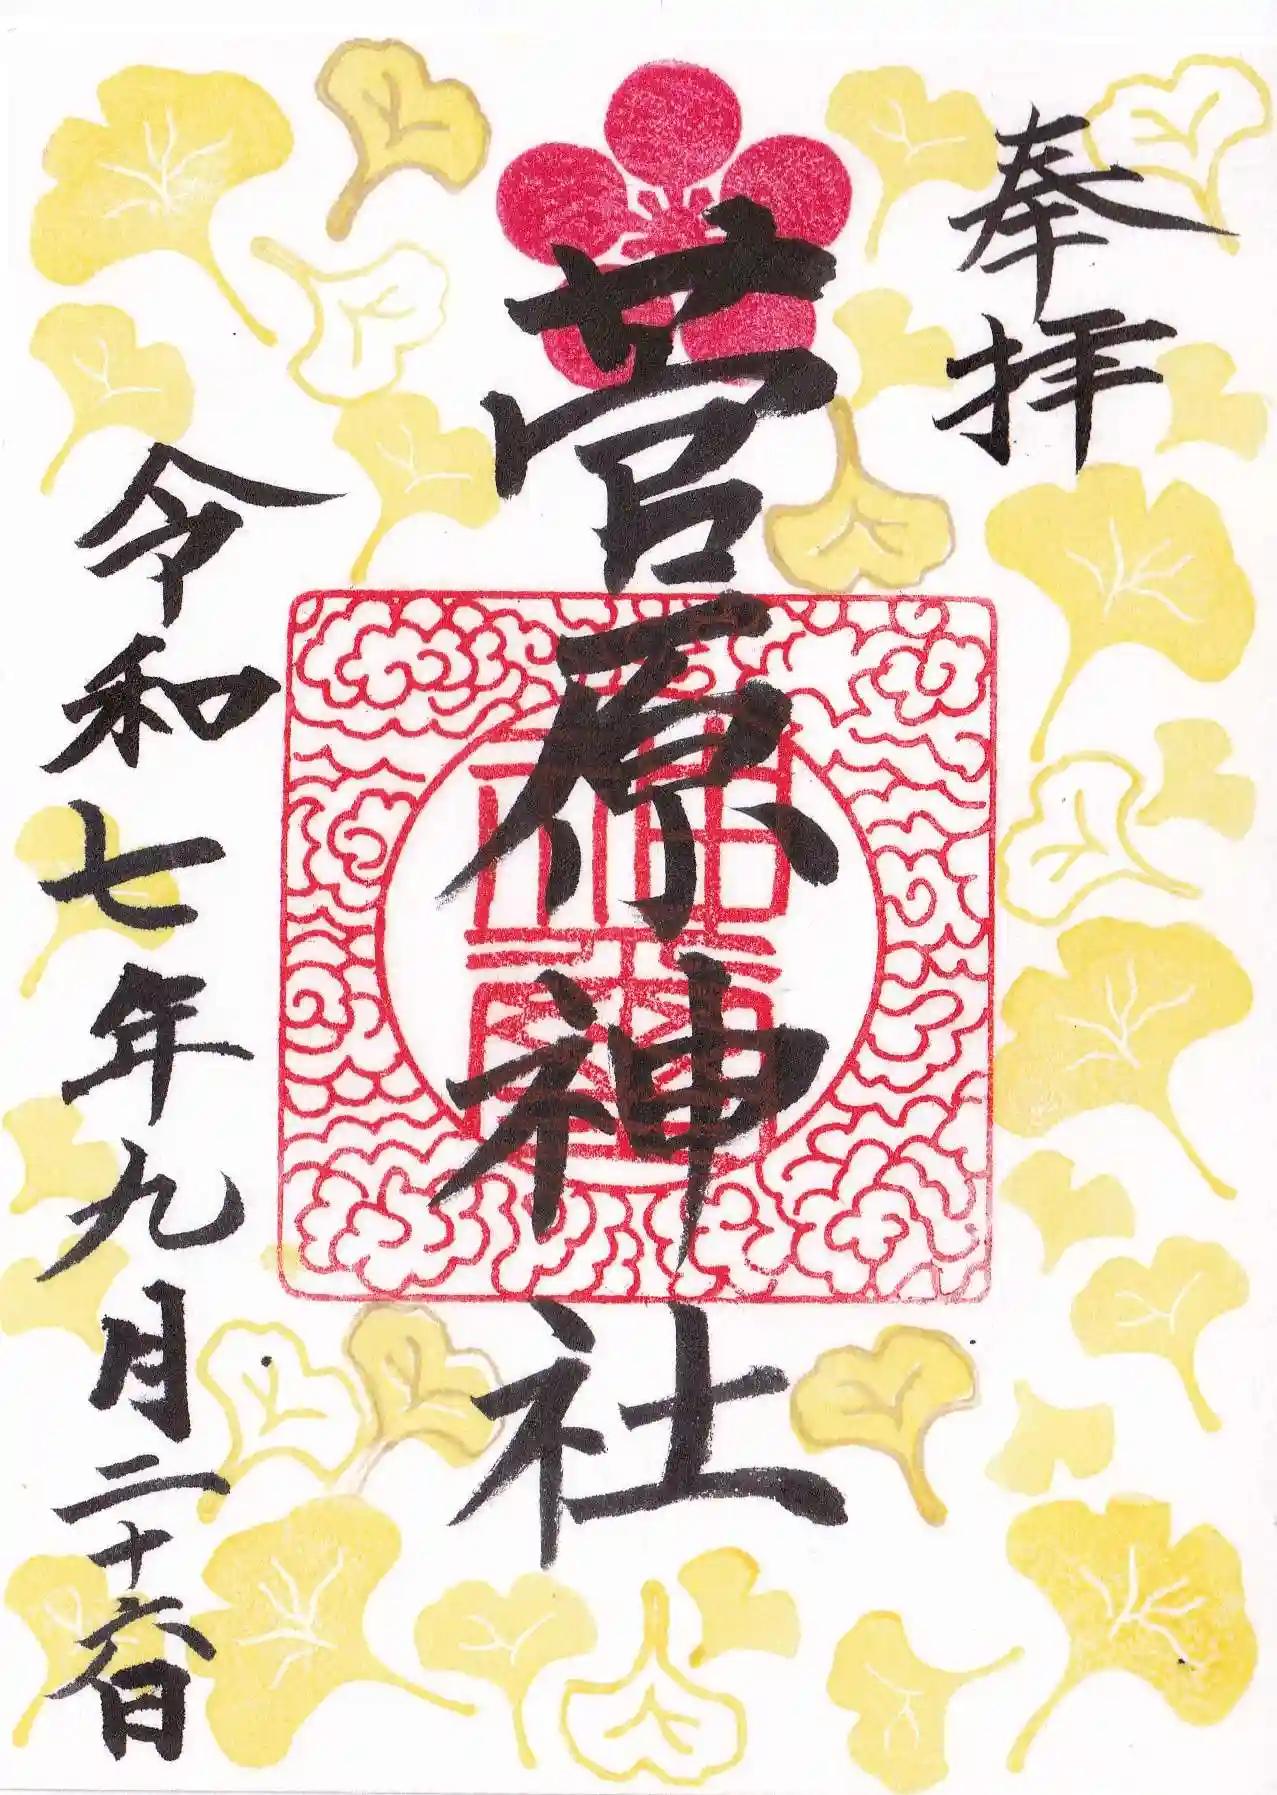 奉拝
菅原神社
令和七年九月二十六日